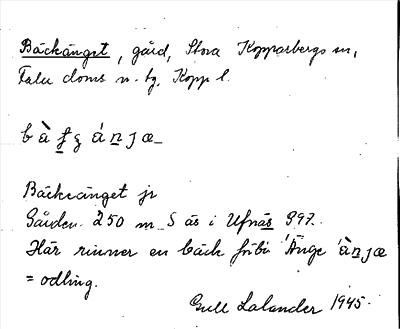 Bäckänget, gård, Stora Kopparbergs sn,
Falu doms n. tg. Kopp l.
bàfgánjæ_
Bäckeänget jr
Gården 250 m S ås i Ufnäs 997.
Här rinner en bäck förbi Änge ànjæ
= odling.
Gull Lalander 1945.